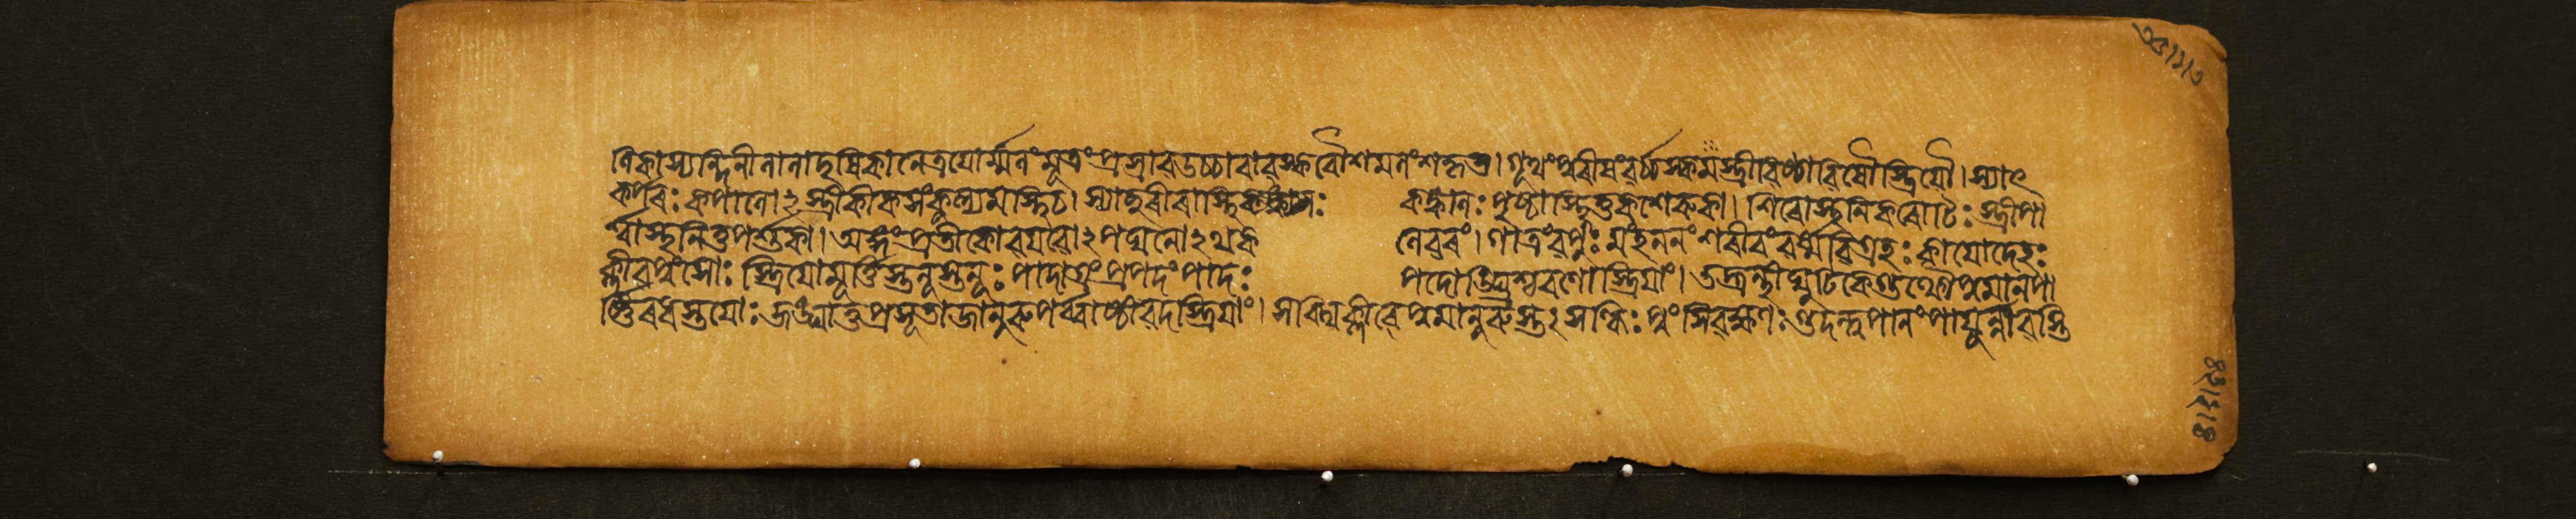 ণিকাস্যন্দিনীলালাদূষিকানেত্রযোর্ম্মলংমূত্রংপ্রস্রাবউচ্চারাবস্করৌশমলংশকৃত্। গূথংপুরীষংবর্চ্চস্কমস্ত্রীবিষ্ঠাবিষৌস্ত্রিযৌ। স্যাৎ
কর্পরঃকপালোঽস্ত্রীকীকসংকুল্যমস্থিচ। স্যাচ্ছরীরাস্থ্নিকঙ্কালঃ পৃষ্ঠাস্থ্নিতুকশেরুকা। শিরোস্থনিকরোটিঃস্ত্রীপা
র্শ্বাস্থনিতুপর্শুকা। অঙ্গংপ্রতীকোবযবোঽপঘনোঽথক লেবরং। গাত্রংবপুঃসংহননংশরীরংবর্ষ্মবিগ্রহঃকাযোদেহঃ
ক্লীবপুংসোঃস্ত্রিযাংমূর্ত্তিস্তনুস্তনূঃপাদাগ্রংপ্রপদংপাদঃ পদোঙ্ঘ্রিশ্চরণোস্ত্রিযাং। তদ্গ্রন্থীঘুটিকেগুল্ফৌপুমান্পা
র্ষ্ণিরধস্তযোঃজঙ্ঘাতুপ্রসৃতাজানূরুপর্ব্বাষ্ঠীবদস্ত্রিযাং। সক্থিক্লীবেপুমানূরুস্তৎসন্ধিঃপুংসিবঙ্ক্ষণঃগুদন্ত্বপানংপাযুর্ন্নাবস্তি